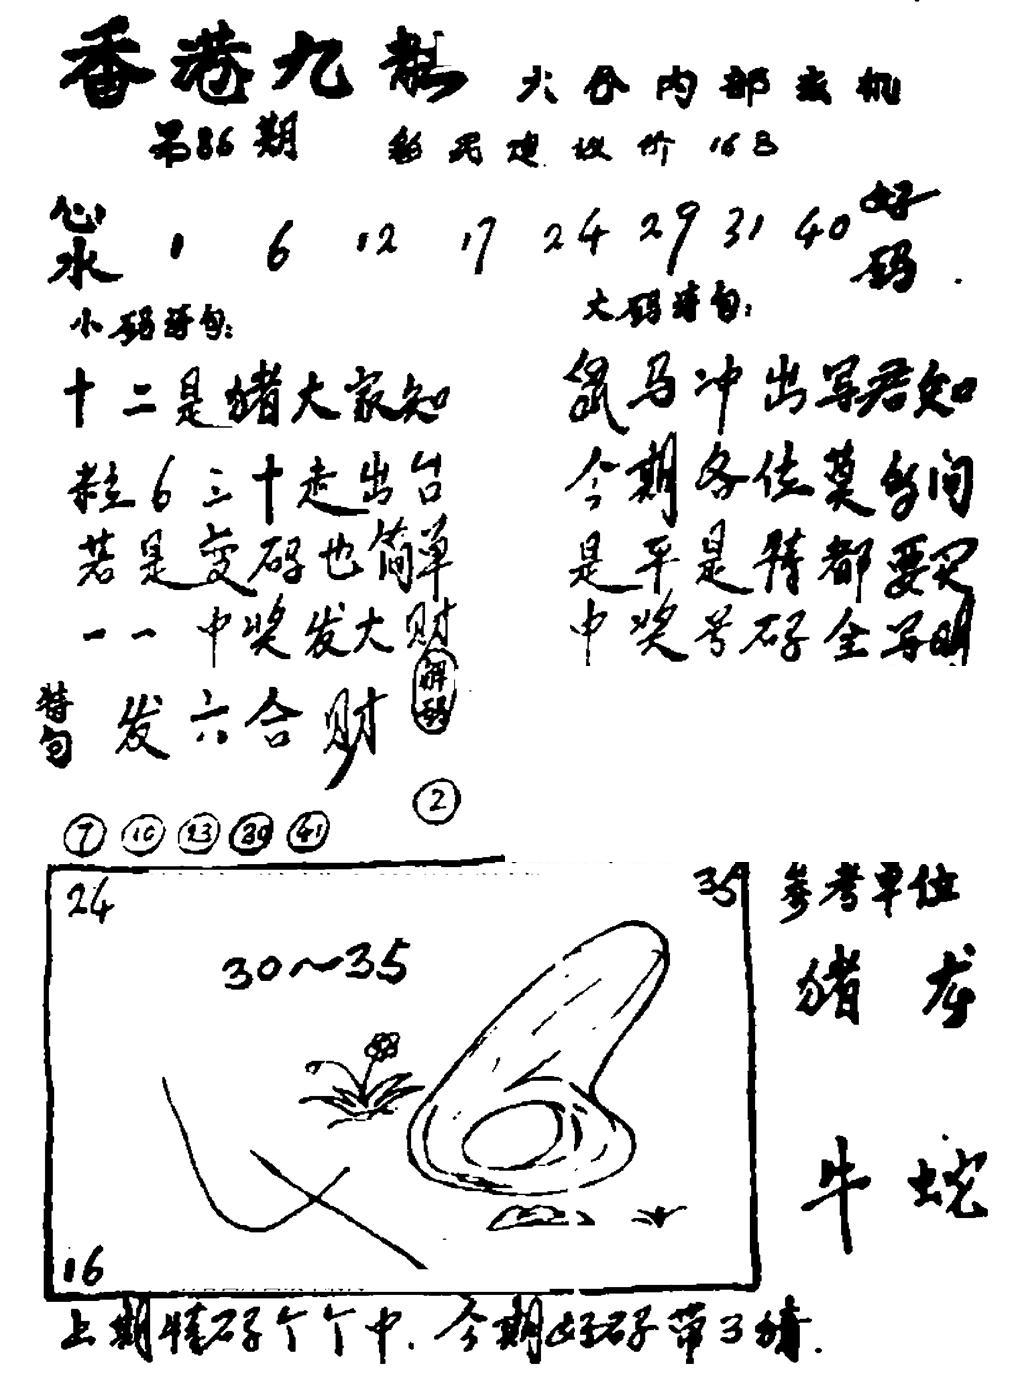 香港九龙 六合内部玄机
第86期 彩民建议价 16元
心水 1 6 12 17 24 29 31 40 好码
小码诗句:
十二是猪大家知
粒6三十走出台
若是变码也简单
一一中奖发大财
大码诗句:
鼠马冲出写君知
今期各位莫错间
是平是特都要买
中奖号码全写明
特句 发六合财
解码
2
7 10 23 30 41
24 35
30~35
16
参考单位
猪 龙
牛 蛇
上期特码个个中.今期好码带3猜.